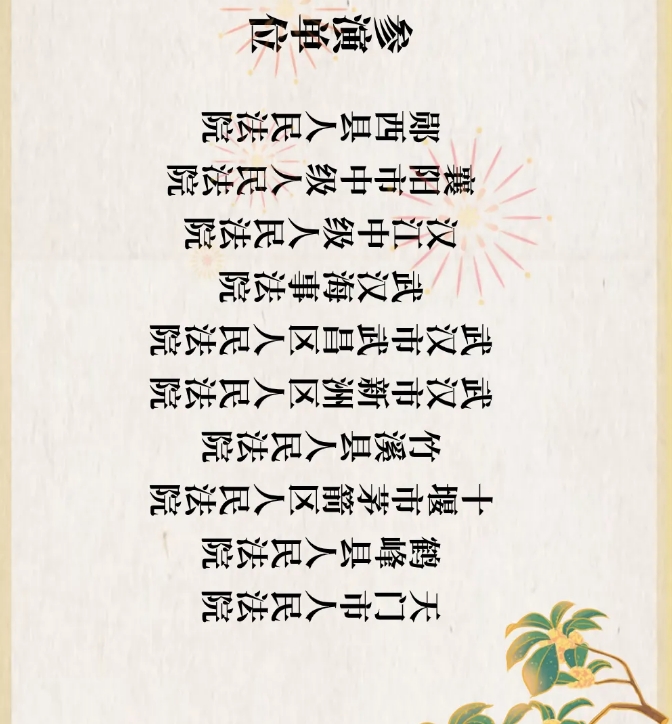 参演单位
郧西县人民法院
襄阳市中级人民法院
汉江中级人民法院
武汉海事法院
武汉市武昌区人民法院
武汉市新洲区人民法院
竹溪县人民法院
十堰市茅箭区人民法院
鹤峰县人民法院
天门市人民法院